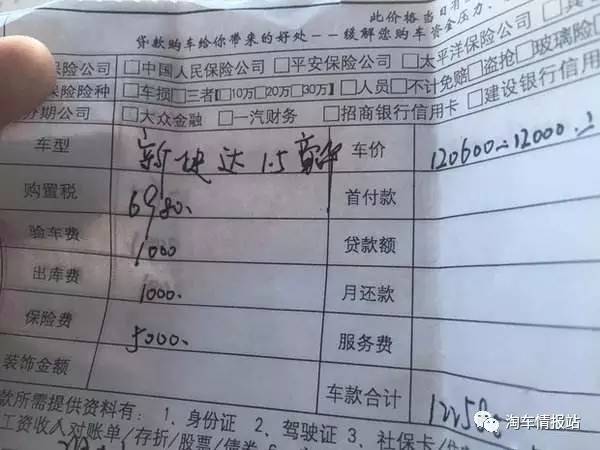 此价格当日有
贷款购车给你带来的好处--缓解您购车资金压力、
保险公司 □中国人民保险公司 □平安保险公司 □太平洋保险公司 □其
保险险种 □车损 □三者【□10万 □20万 □30万】 □人员 □不计免赔 □盗抢 □玻璃险
分期公司 □大众金融 □一汽财务 □招商银行信用卡 □建设银行信用
车型 新捷达 1.5 豪华 车价 120600 12000
购置税 6980. 首付款
验车费 1000 贷款额
出库费 1000. 月还款
保险费 5000. 服务费
装饰金额 车款合计 122580
款所需提供资料有：1、身份证 2、驾驶证 3、社保卡/
工资收入对账单/存折/股票/债券 6
淘车情报站